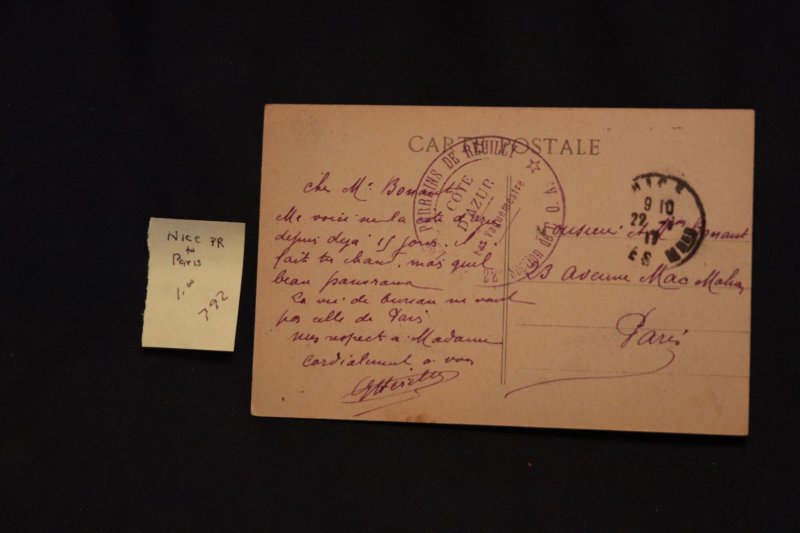 NICE FR
to
Paris
1.00
792
CARTE POSTALE
PARRAINS DE REUILLY
CÔTE
D'AZUR
Vaguemestre
NICE
9 10
22
17
Cher Mr Bonant
Me voici sur la côte d'azur
depuis deja 15 jours. Il
fait tres chaud, mais quel
beau panorama
La vie de bureau ne vaut
pas celle de Paris
mes respect a Madame
cordialement a vous
Monsieur et Mme Bonant
23 avenue Mac Mahon
Paris